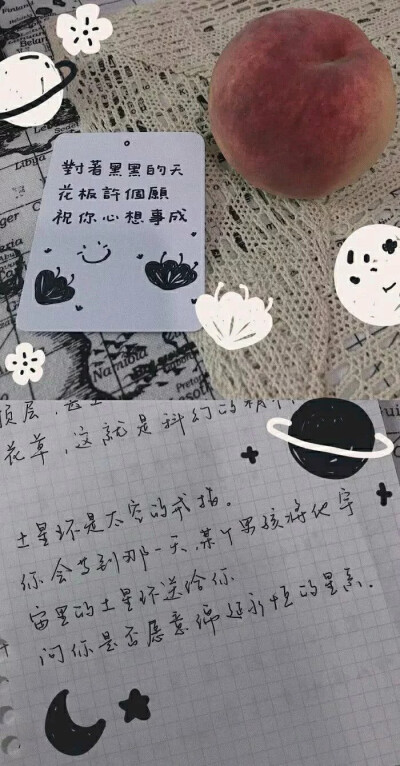 Finland
Belaru
Libya
Namibia
Pretor
對著黑黑的天
花板許個願
祝你心想事成
顶层
花草,这就是科幻的精
土星环是太空的戒指。
你会等到那一天,某个男孩将他宇
宙里的土星环送给你
问你是否愿意绵延永恒的星系.